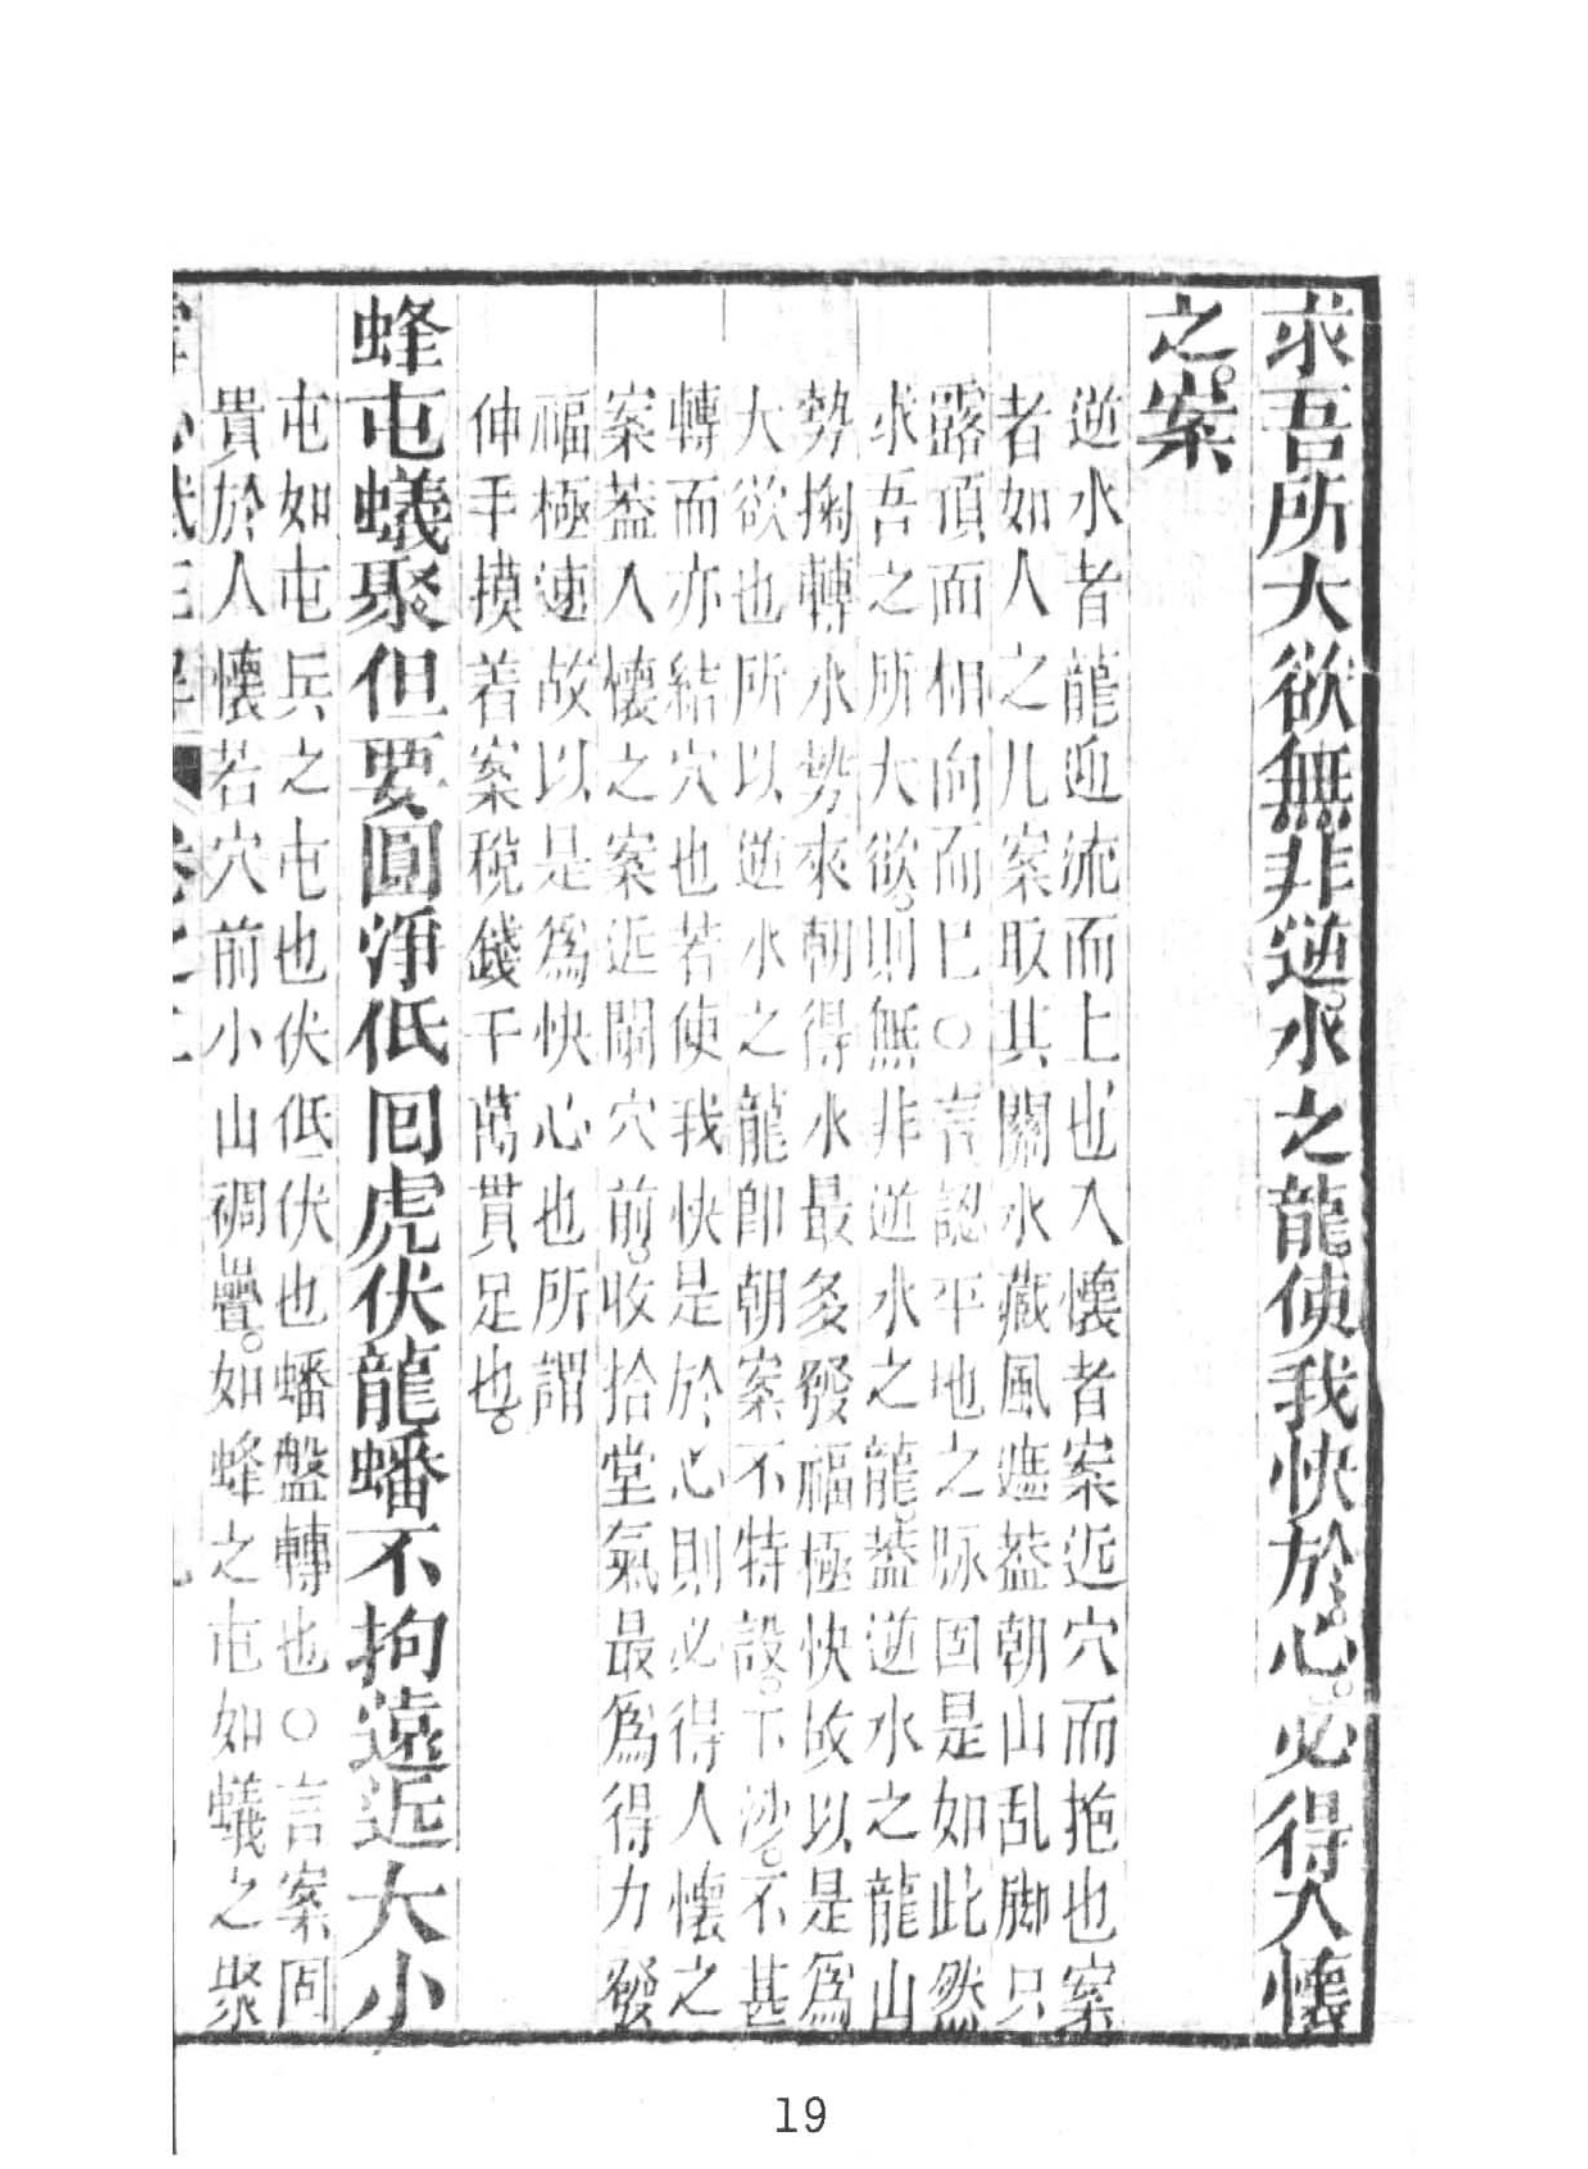 求吾所大欲無非逆水之龍使我快於心必得入懷
之案
逆水者龍逆流而上也入懷者案近穴而抱也案
者如人之几案取其關水藏風遮葢朝山乱脚只
露頂而相向而已○言認平地之脉固是如此然
求吾之所大欲則無非逆水之龍葢逆水之龍山
勢掬轉水勢來朝得水最多發福極快故以是為
大欲也所以逆水之龍即朝案不特設下沙不甚
轉而亦結穴也若使我快是於心則必得人懷之
案葢入懷之案近關穴前收拾堂氣最為得力發
福極速故以是為快心也所謂
伸手摸着案稅錢千萬貫足也
蜂屯蟻聚但要圓淨低囘虎伏龍蟠不拘遠近大小
屯如屯兵之屯也伏低伏也蟠盤轉也○言案固
貴於人懷若穴前小山稠疊如蜂之屯如蟻之聚
19